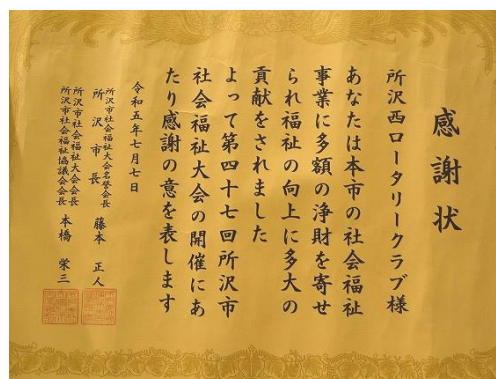 感謝状
所沢西ロータリークラブ様
あなたは本市の社会福祉
事業に多額の浄財を寄せ
られ福祉の向上に多大の
貢献をされました
よって第四十七回所沢市
社会福祉大会の開催にあ
たり感謝の意を表します
令和五年七月七日
所沢市社会福祉大会名誉会長
所沢市長 藤本正人
所沢市社会福祉大会会長
所沢市社会福祉協議会会長 本橋栄三